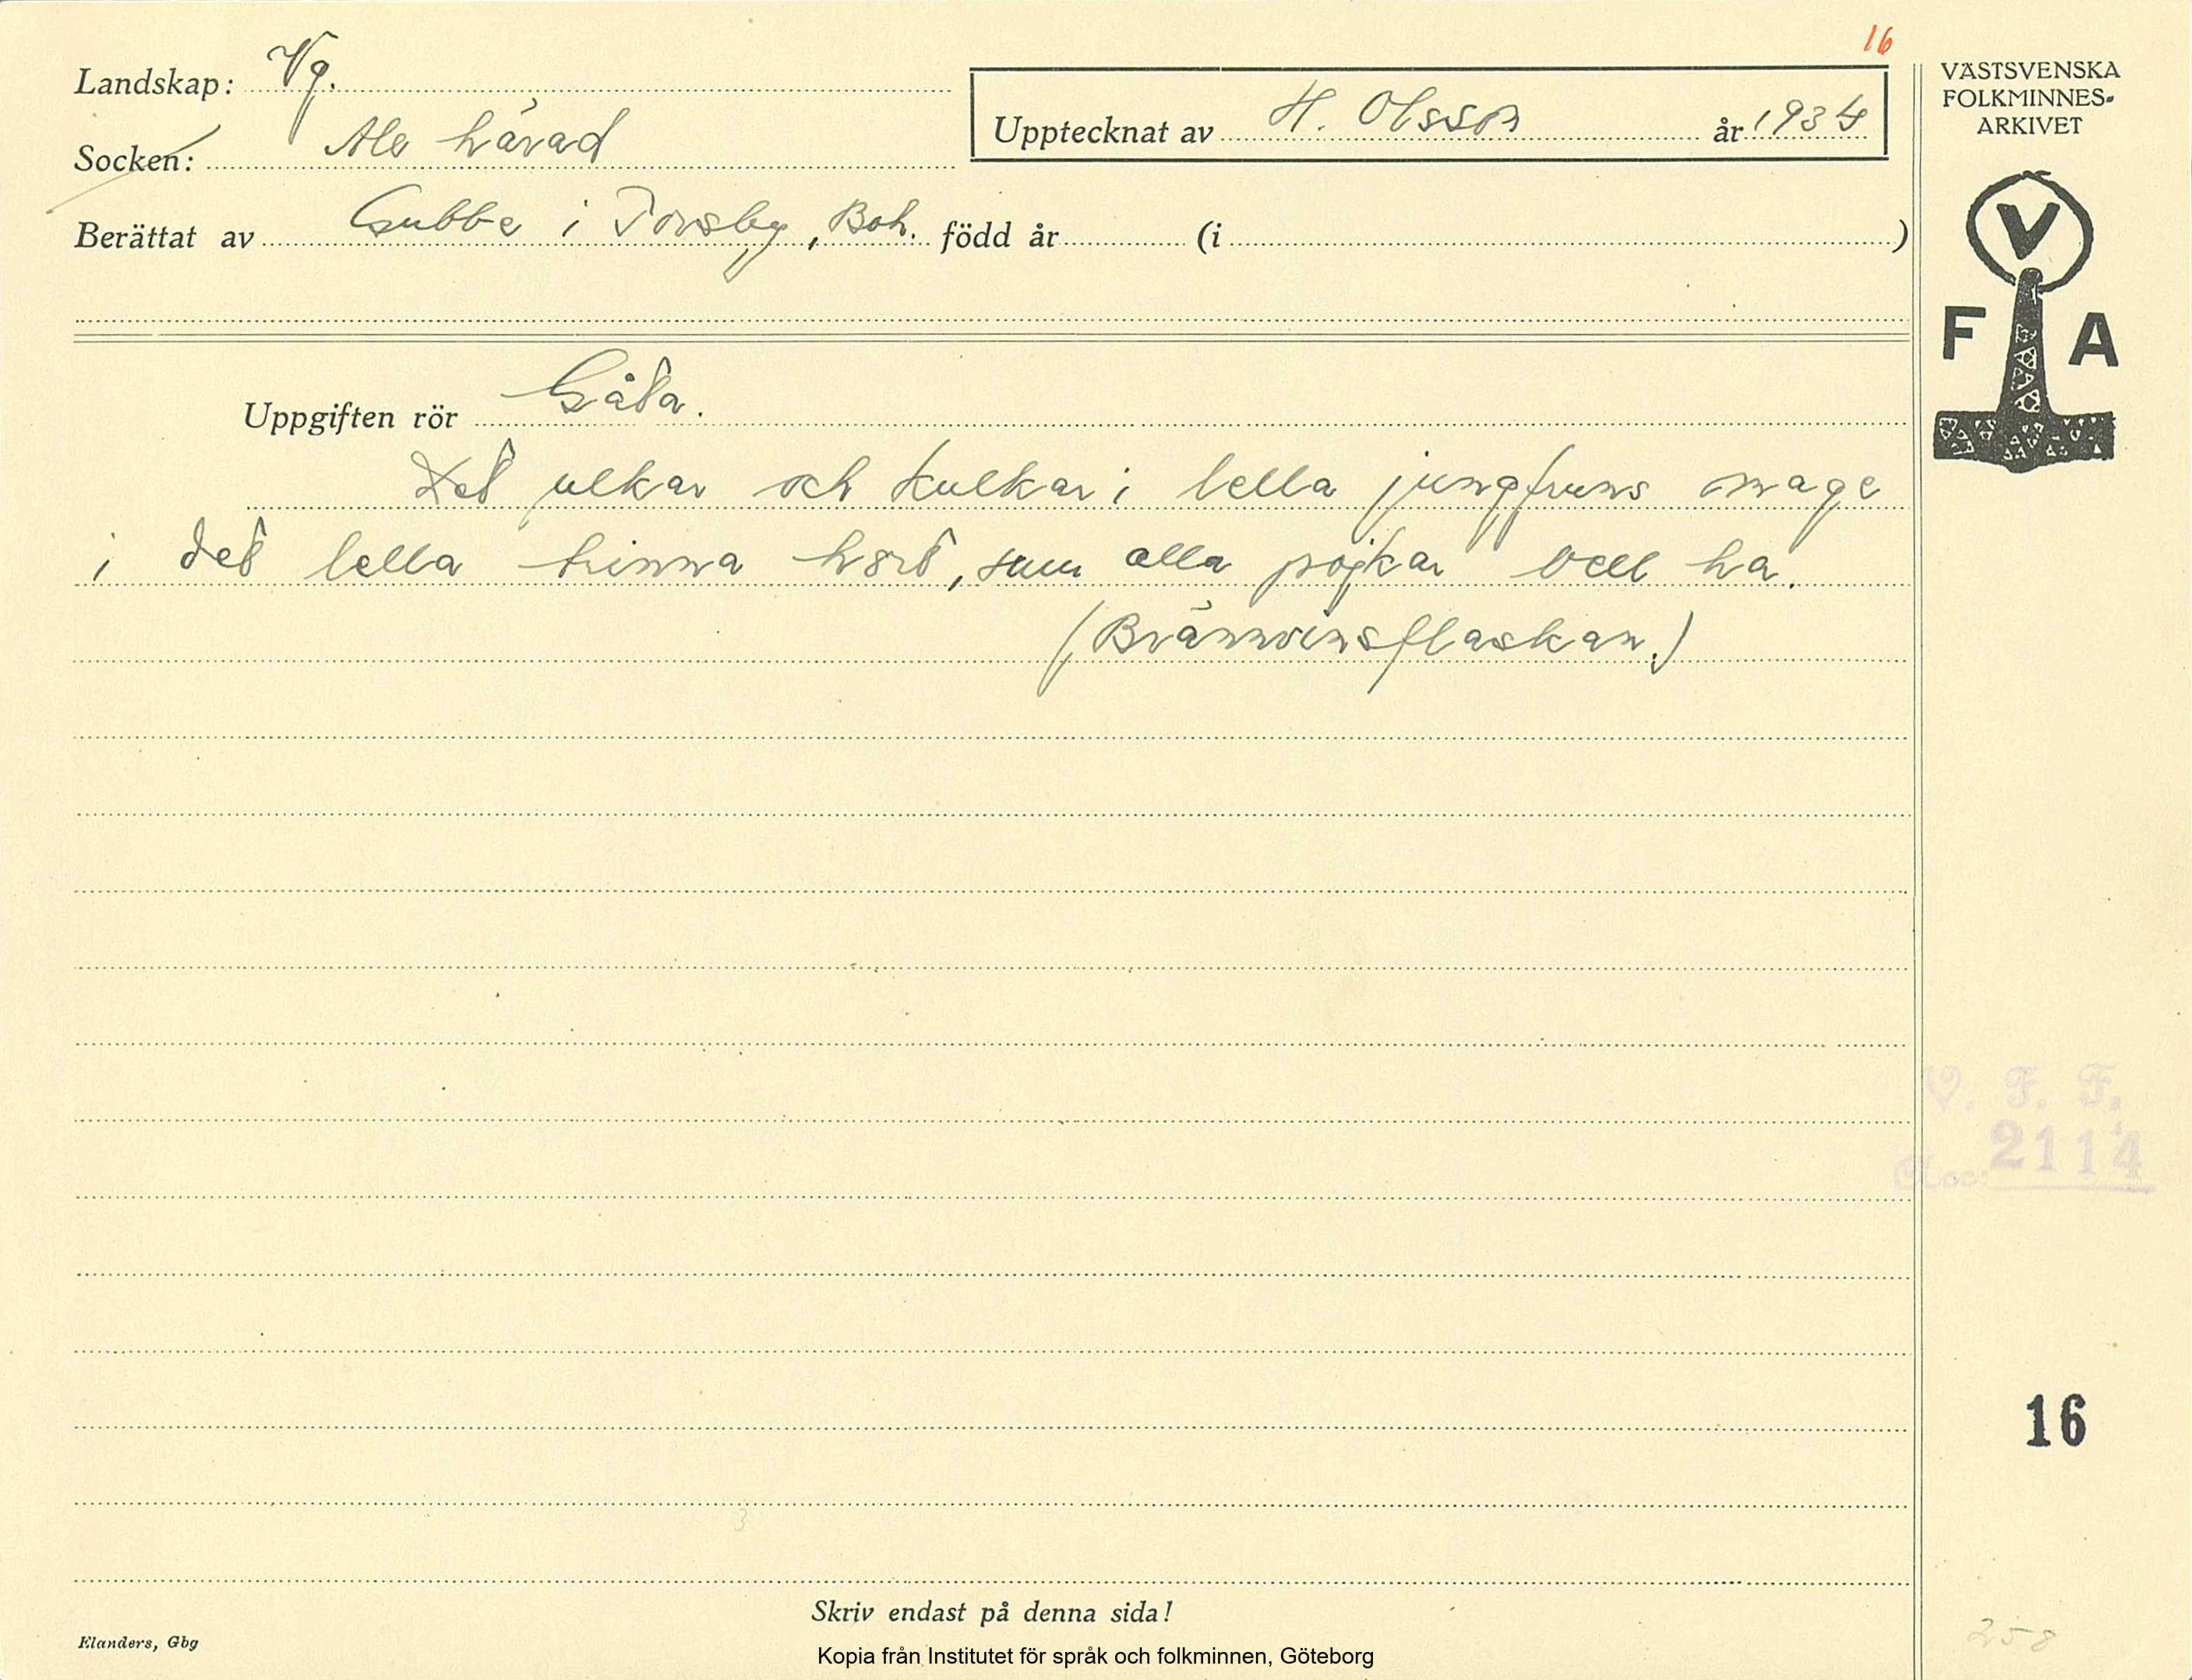 16
Landskap: Vg.
Socken: Ale härad
Upptecknat av H. Olsson år 1934
Berättat av Gubbe i Torsby, Boh. född år (i )
Uppgiften rör Gåta.
Det ulkar och kulkar i lella jungfruns mage
i det lella trinna hort, som alla pojkar vell ha.
(Brännvinsflaskan.)
VÄSTSVENSKA
FOLKMINNES-
ARKIVET
V
F A
V. F. F.
Acc. 2114
16
3
258
Skriv endast på denna sida!
Elanders, Gbg
Kopia från Institutet för språk och folkminnen, Göteborg